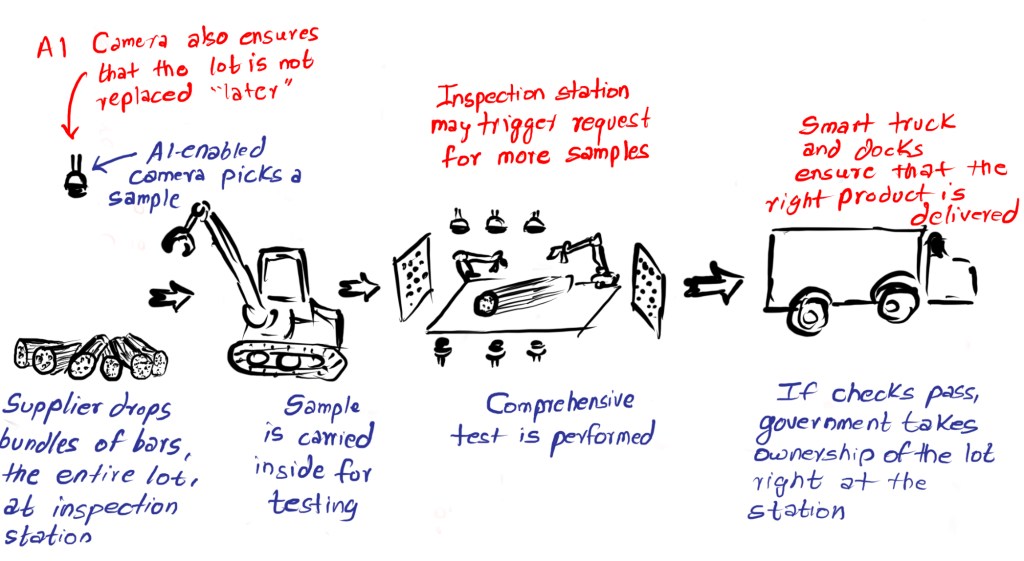 AI Camera also ensures
that the lot is not
replaced "later"
AI-enabled
camera picks a
sample
Inspection station
may trigger request
for more samples
Smart truck
and docks
ensure that the
right product is
delivered
Supplier drops
bundles of bars,
the entire lot,
at inspection
station
Sample
is carried
inside for
testing
Comprehensive
test is performed
If checks pass,
government takes
ownership of the lot
right at the
station